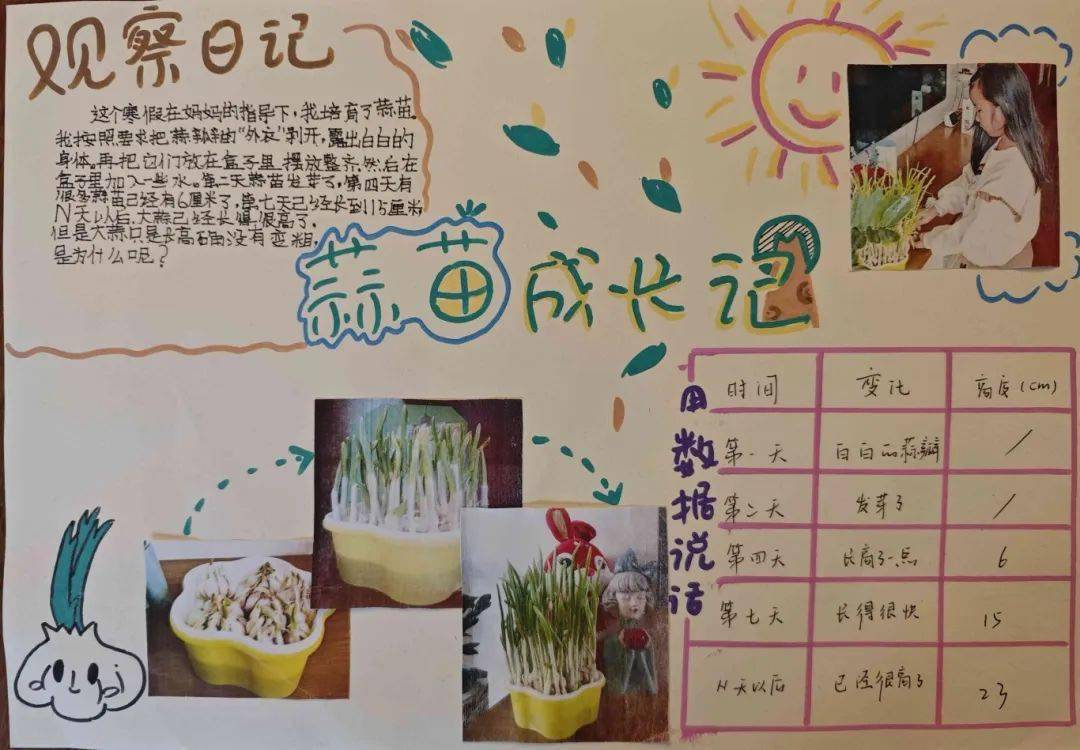 观察日记
这个寒假在妈妈的指导下，我培育了蒜苗。
我按照要求把蒜瓣的“外衣”剥开，露出白白的
身体。再把它们放在盒子里摆放整齐，然后在
盒子里加入一些水。第二天蒜苗发芽了，第四天有
很多蒜苗已经有6厘米了，第七天已经长到15厘米
N天以后，大蒜已经长得很高了，
但是大蒜只是长高确没有变粗，
是为什么呢？
蒜苗成长记
用数据说话
时间 变化 高度(cm)
第一天 白白的蒜瓣 /
第二天 发芽了 /
第四天 长高了一点 6
第七天 长得很快 15
N天以后 已经很高了 23